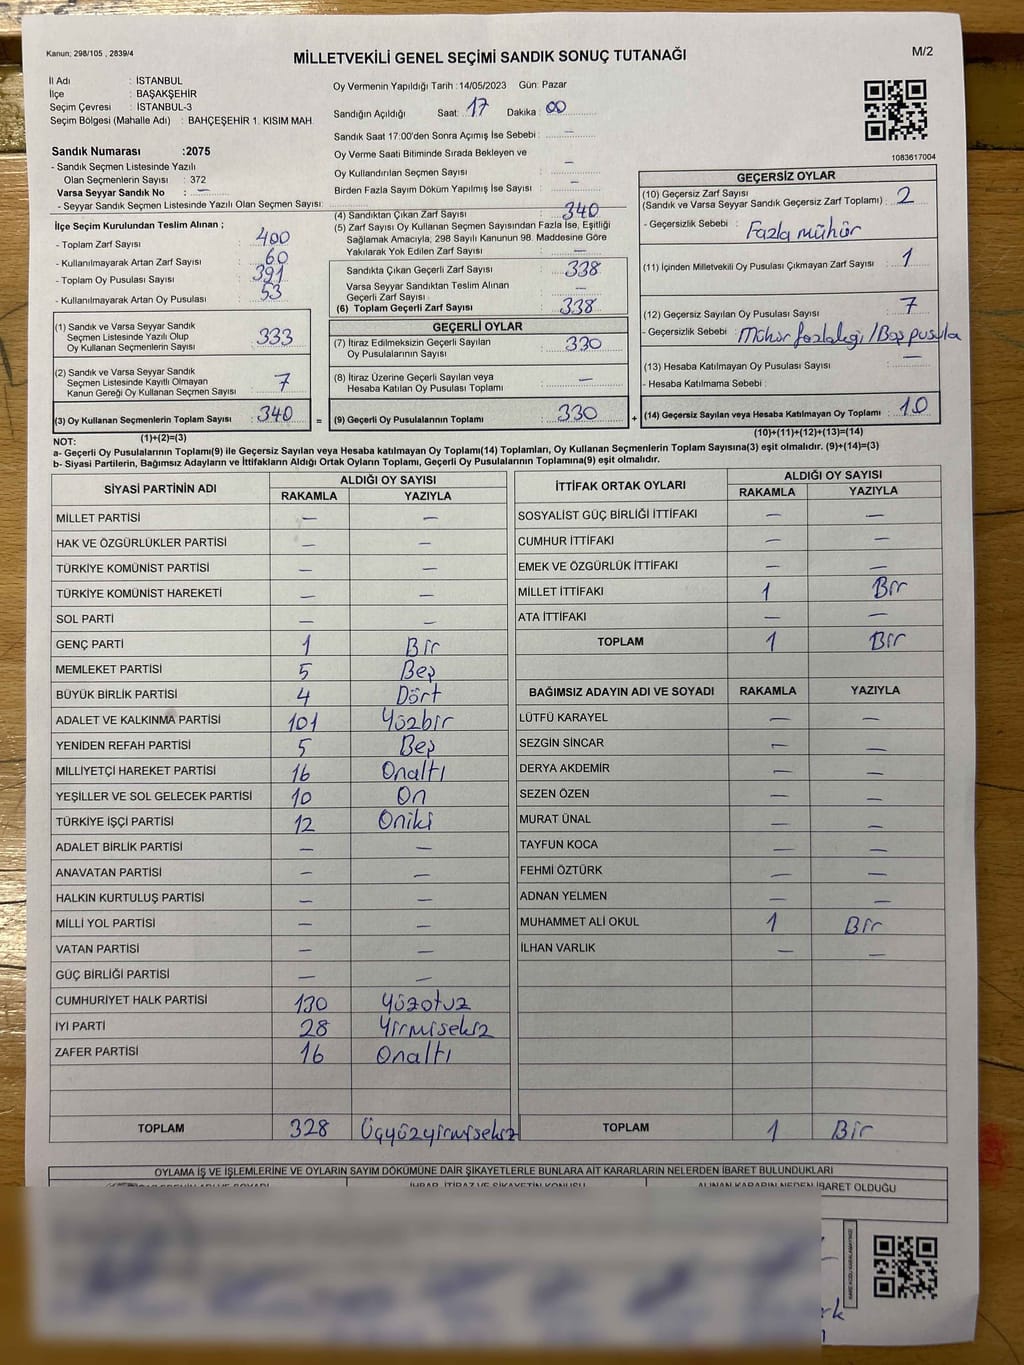 Kanun; 298/105 , 2839/4
MİLLETVEKİLİ GENEL SEÇİMİ SANDIK SONUÇ TUTANAĞI
M/2
İl Adı : İSTANBUL
İlçe : BAŞAKŞEHİR
Seçim Çevresi : İSTANBUL-3
Seçim Bölgesi (Mahalle Adı) : BAHÇEŞEHİR 1. KISIM MAH.
Oy Vermenin Yapıldığı Tarih :14/05/2023 Gün: Pazar
Sandığın Açıldığı Saat: 17 Dakika : 00
Sandık Saat 17:00'den Sonra Açımış İse Sebebi : —
Oy Verme Saati Bitiminde Sırada Bekleyen ve
Oy Kullandırılan Seçmen Sayısı : —
Birden Fazla Sayım Döküm Yapılmış İse Sayısı : —
Sandık Numarası :2075
- Sandık Seçmen Listesinde Yazılı
Olan Seçmenlerin Sayısı : 372
Varsa Seyyar Sandık No : —
- Seyyar Sandık Seçmen Listesinde Yazılı Olan Seçmen Sayısı:
1083617004
İlçe Seçim Kurulundan Teslim Alınan ;
- Toplam Zarf Sayısı : 400
- Kullanılmayarak Artan Zarf Sayısı : 60
- Toplam Oy Pusulası Sayısı : 391
- Kullanılmayarak Artan Oy Pusulası : 53
(1) Sandık ve Varsa Seyyar Sandık
Seçmen Listesinde Yazılı Olup
Oy Kullanan Seçmenlerin Sayısı : 333
(2) Sandık ve Varsa Seyyar Sandık
Seçmen Listesinde Kayıtlı Olmayan
Kanun Gereği Oy Kullanan Seçmen Sayısı : 7
(3) Oy Kullanan Seçmenlerin Toplam Sayısı : 340 =
(4) Sandıktan Çıkan Zarf Sayısı : 340
(5) Zarf Sayısı Oy Kullanan Seçmen Sayısından Fazla İse, Eşitliği
Sağlamak Amacıyla, 298 Sayılı Kanunun 98. Maddesine Göre
Yakılarak Yok Edilen Zarf Sayısı : —
Sandıkta Çıkan Geçerli Zarf Sayısı : 338
Varsa Seyyar Sandıktan Teslim Alınan
Geçerli Zarf Sayısı : —
(6) Toplam Geçerli Zarf Sayısı : 338
GEÇERLİ OYLAR
(7) İtiraz Edilmeksizin Geçerli Sayılan
Oy Pusulalarının Sayısı : 330
(8) İtiraz Üzerine Geçerli Sayılan veya
Hesaba Katılan Oy Pusulası Toplamı : —
(9) Geçerli Oy Pusulalarının Toplamı : 330 +
GEÇERSİZ OYLAR
(10) Geçersiz Zarf Sayısı
(Sandık ve Varsa Seyyar Sandık Geçersiz Zarf Toplamı) : 2
- Geçersizlik Sebebi : Fazla mühür
(11) İçinden Milletvekili Oy Pusulası Çıkmayan Zarf Sayısı : 1
(12) Geçersiz Sayılan Oy Pusulası Sayısı : 7
- Geçersizlik Sebebi : Mühür fazlalığı/Boş pusula
(13) Hesaba Katılmayan Oy Pusulası Sayısı : —
- Hesaba Katılmama Sebebi :
(14) Geçersiz Sayılan veya Hesaba Katılmayan Oy Toplamı : 10
(1)+(2)=(3)
(10)+(11)+(12)+(13)=(14)
NOT:
a- Geçerli Oy Pusulalarının Toplamı(9) ile Geçersiz Sayılan veya Hesaba katılmayan Oy Toplamı(14) Toplamları, Oy Kullanan Seçmenlerin Toplam Sayısına(3) eşit olmalıdır. (9)+(14)=(3)
b- Siyasi Partilerin, Bağımsız Adayların ve İttifakların Aldığı Ortak Oyların Toplamı, Geçerli Oy Pusulalarının Toplamına(9) eşit olmalıdır.
SİYASİ PARTİNİN ADI ALDIĞI OY SAYISI
RAKAMLA YAZIYLA
MİLLET PARTİSİ — —
HAK VE ÖZGÜRLÜKLER PARTİSİ — —
TÜRKİYE KOMÜNİST PARTİSİ — —
TÜRKİYE KOMÜNİST HAREKETİ — —
SOL PARTİ — —
GENÇ PARTİ 1 Bir
MEMLEKET PARTİSİ 5 Beş
BÜYÜK BİRLİK PARTİSİ 4 Dört
ADALET VE KALKINMA PARTİSİ 101 Yüzbir
YENİDEN REFAH PARTİSİ 5 Beş
MİLLİYETÇİ HAREKET PARTİSİ 16 Onaltı
YEŞİLLER VE SOL GELECEK PARTİSİ 10 On
TÜRKİYE İŞÇİ PARTİSİ 12 Oniki
ADALET BİRLİK PARTİSİ — —
ANAVATAN PARTİSİ — —
HALKIN KURTULUŞ PARTİSİ — —
MİLLİ YOL PARTİSİ — —
VATAN PARTİSİ — —
GÜÇ BİRLİĞİ PARTİSİ — —
CUMHURİYET HALK PARTİSİ 130 Yüzotuz
İYİ PARTİ 28 Yirmisekiz
ZAFER PARTİSİ 16 Onaltı
TOPLAM 328 Üçyüzyirmisekiz
İTTİFAK ORTAK OYLARI ALDIĞI OY SAYISI
RAKAMLA YAZIYLA
SOSYALİST GÜÇ BİRLİĞİ İTTİFAKI — —
CUMHUR İTTİFAKI — —
EMEK VE ÖZGÜRLÜK İTTİFAKI — —
MİLLET İTTİFAKI 1 Bir
ATA İTTİFAKI — —
TOPLAM 1 Bir
BAĞIMSIZ ADAYIN ADI VE SOYADI RAKAMLA YAZIYLA
LÜTFÜ KARAYEL — —
SEZGİN SİNCAR — —
DERYA AKDEMİR — —
SEZEN ÖZEN — —
MURAT ÜNAL — —
TAYFUN KOCA — —
FEHMİ ÖZTÜRK — —
ADNAN YELMEN — —
MUHAMMET ALİ OKUL 1 Bir
İLHAN VARLIK — —
TOPLAM 1 Bir
OYLAMA İŞ VE İŞLEMLERİNE VE OYLARIN SAYIM DÖKÜMÜNE DAİR ŞİKAYETLERLE BUNLARA AİT KARARLARIN NELERDEN İBARET BULUNDUKLARI
İHBAR, İTİRAZ VE ŞİKAYETİN KONUSU
ALINAN KARARIN NEDEN İBARET OLDUĞU